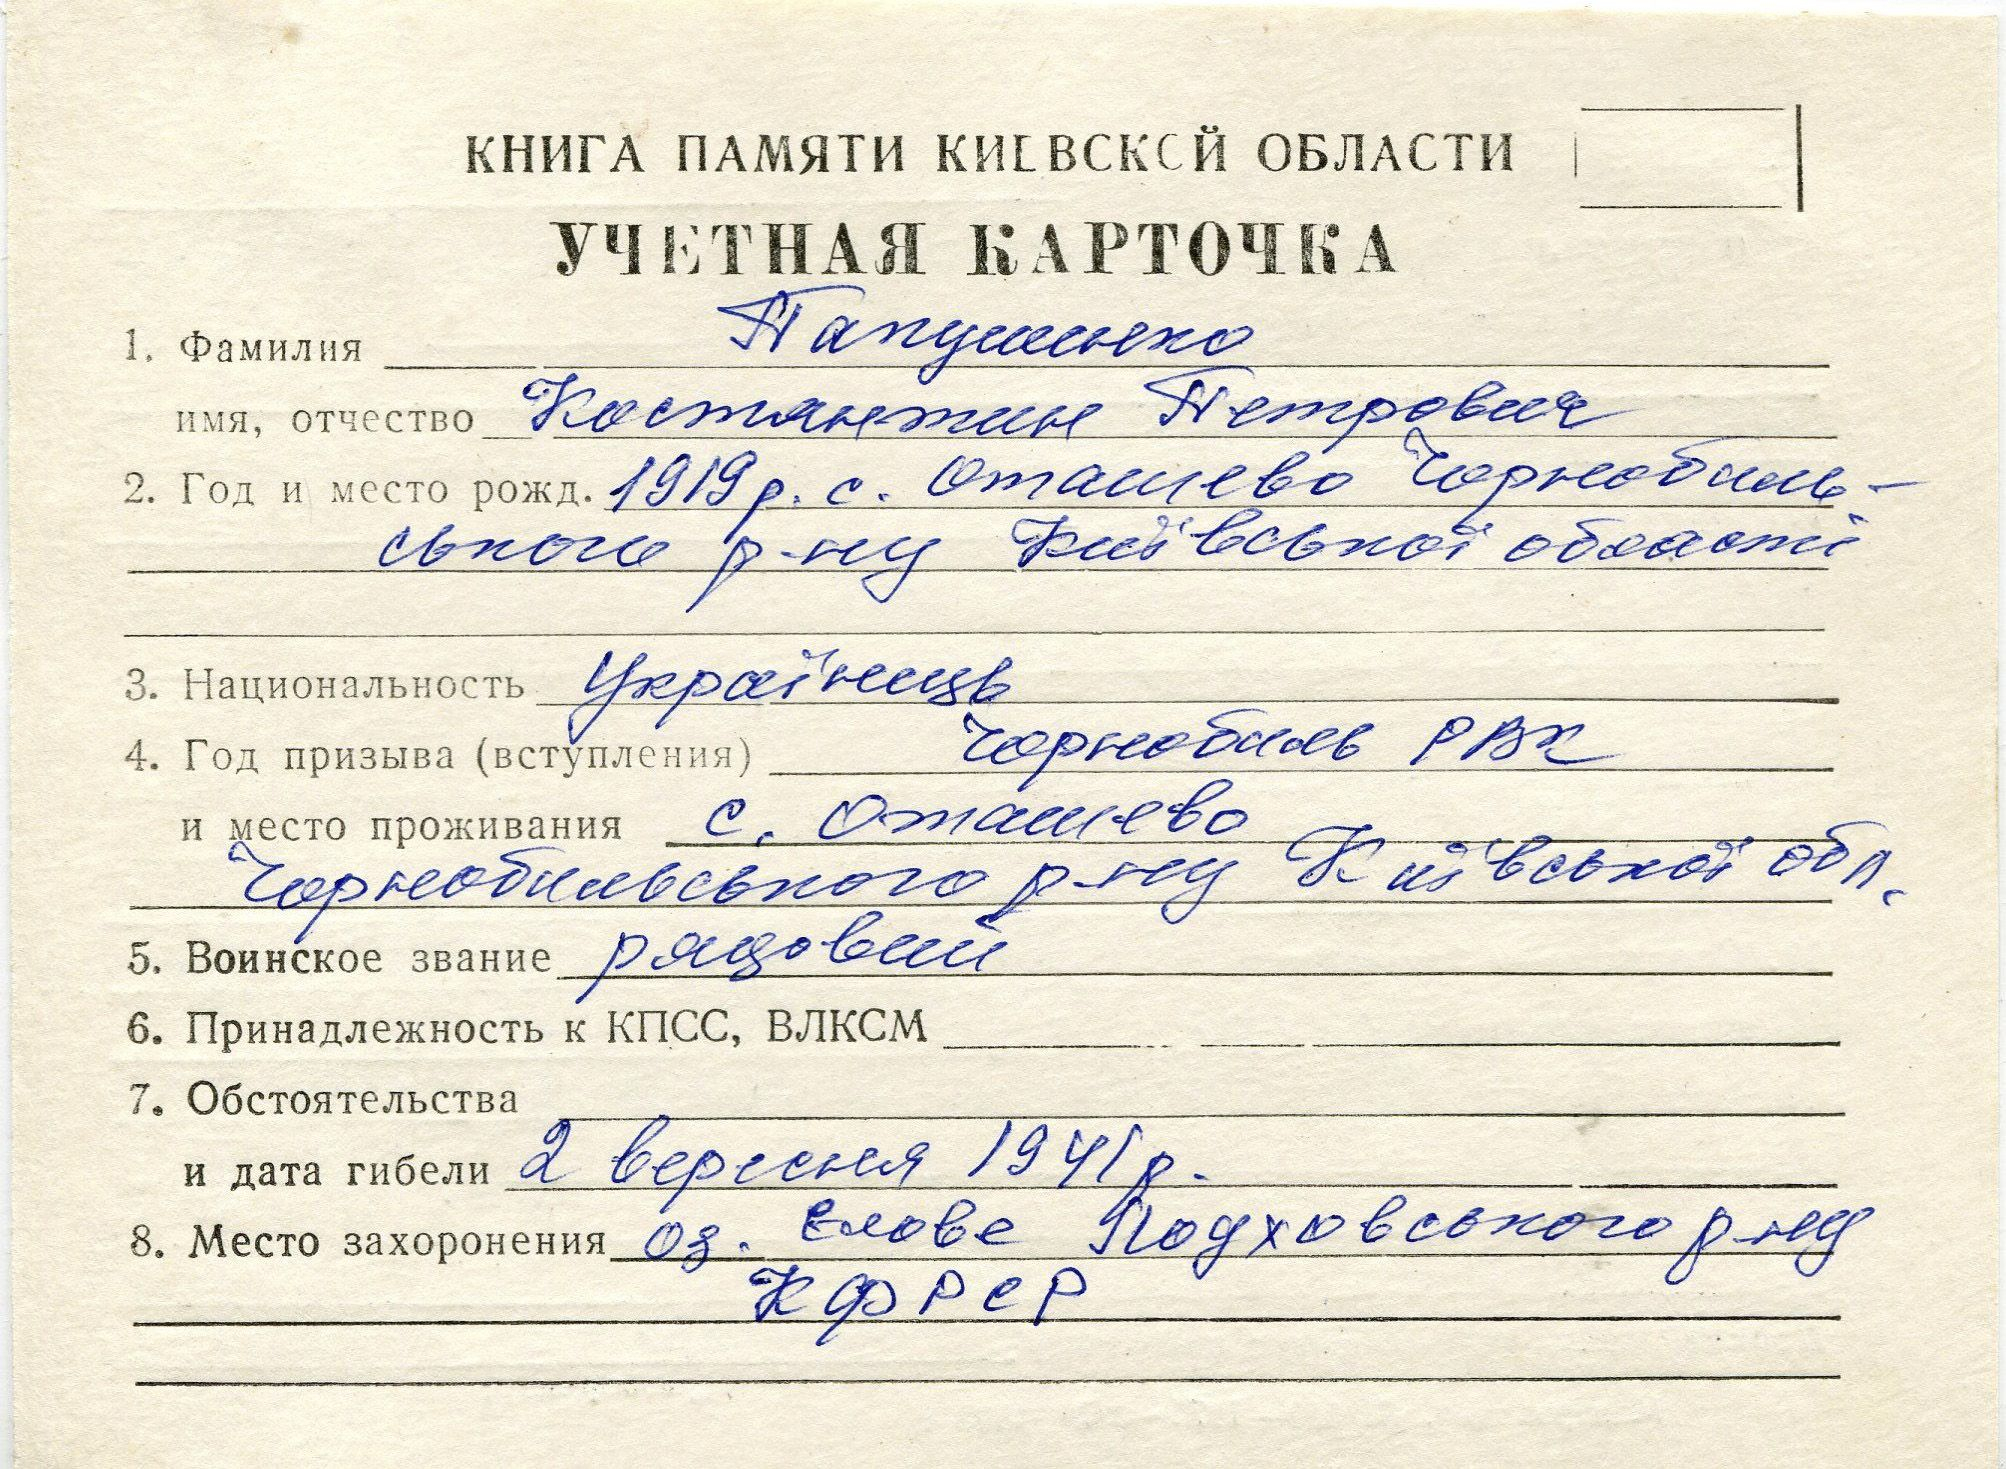 КНИГА ПАМЯТИ КИЕВСКОЙ ОБЛАСТИ
УЧЕТНАЯ КАРТОЧКА
1. Фамилия Папушенко
имя, отчество Костянтин Петрович
2. Год и место рожд. 1919 р. с. Оташево Чорнобиль-
ського р-ну Київської області
3. Национальность Українець
4. Год призыва (вступления) Чорнобиль РВК
и место проживания с. Оташево
Чорнобильського р-ну Київської обл.
5. Воинское звание рядовий
6. Принадлежность к КПСС, ВЛКСМ
7. Обстоятельства
и дата гибели 2 вересня 1941 р.
8. Место захоронения оз. Елове р-ну
КФРСР